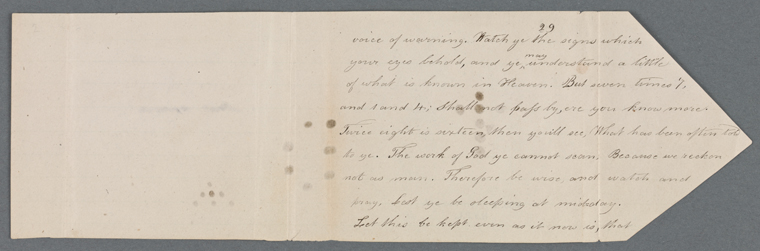 29
voice of warning. Watch ye the signs which
your eyes behold, and ye may understand a little
of what is known in Heaven. But seven times 7,
and 1 and 4; Shall not pass by, ere you know more.
Twice eight is sixteen, then you'll see, What has been often told
to ye. The work of God ye cannot scan, Because we reckon
not as man. Therefore be wise, and watch and
pray. Lest ye be sleeping at midday.
Let this be kept even as it now is, that